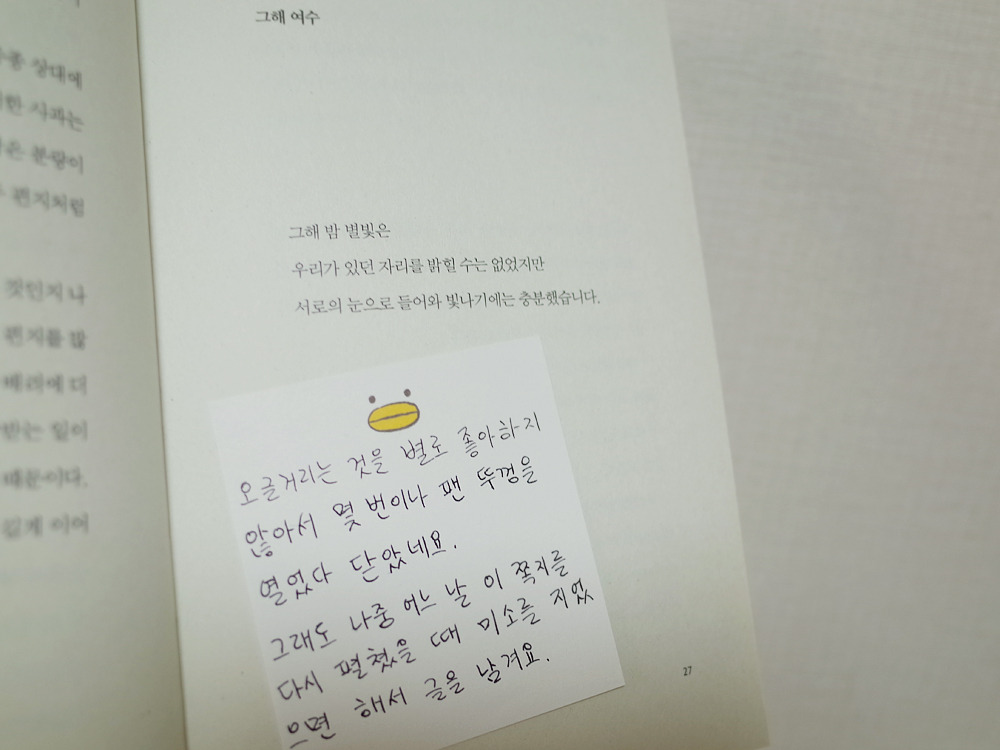 상대에
사과는
분량이
편지처럼
것인지 나
편지를 많
배려에 더
받는 일이
때문이다.
길게 이어
그해 여수
그해 밤 별빛은
우리가 있던 자리를 밝힐 수는 없었지만
서로의 눈으로 들어와 빛나기에는 충분했습니다.
오글거리는 것을 별로 좋아하지
않아서 몇 번이나 팬 뚜껑을
열었다 닫았네요.
그래도 나중 어느 날 이 쪽지를
다시 펼쳤을 때 미소를 지었
으면 해서 글을 남겨요.
27